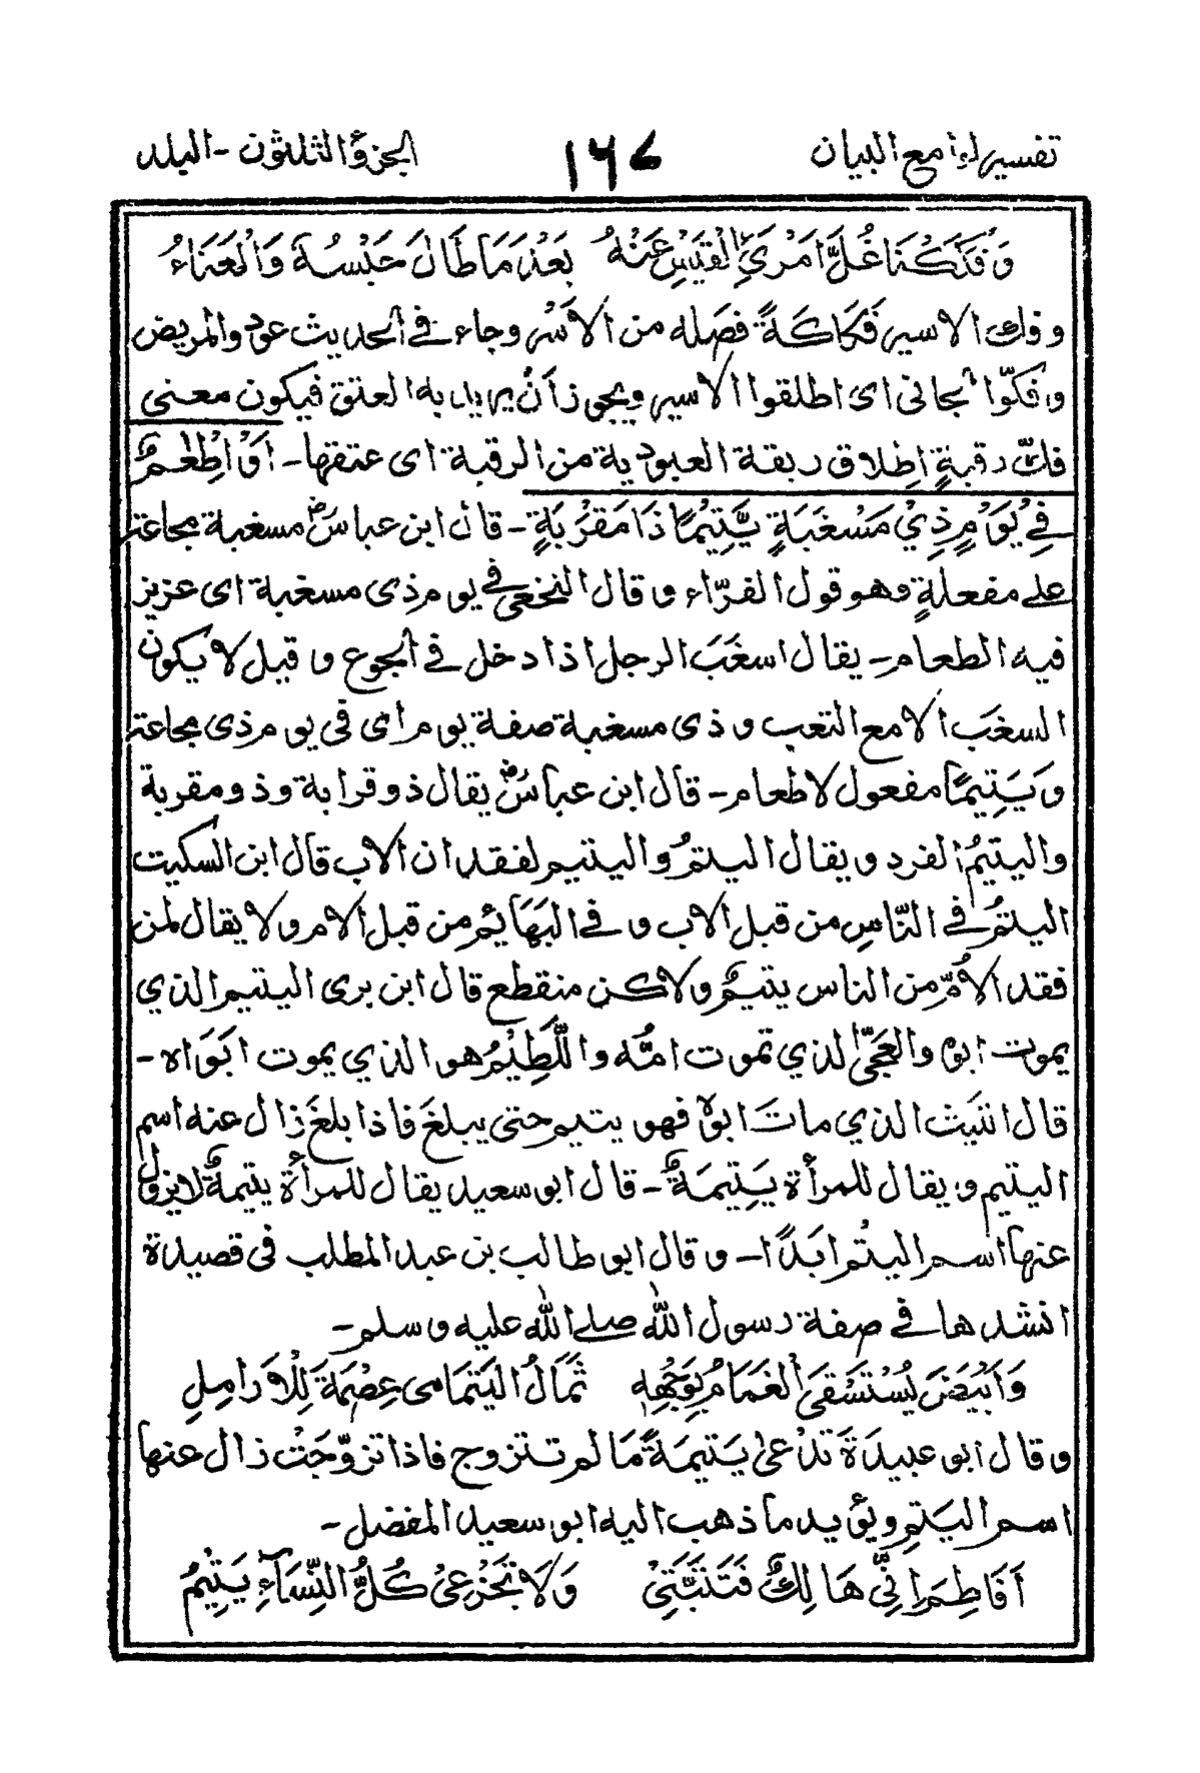 تفسير لوامع البيان ١٦٧ الجزؤ الثلثون - البلد
وَفَكَكْنَا غُلَّ امْرَئِ الْقَيْسِ عَنْهُ بَعْدَ مَا طَالَ حَبْسُهُ وَالْعَنَاءُ
وفك الاسير فَكَاكَةً فصله من الاَسْر وجاء في الحديث عودوالمريض
وفكّوا اى اطلقوا الاسير ويجوز أنْ يريد به العتق فيكون معنى
فكّ رقبةٍ اِطلاق ربقة العبودية من الرقبة اى عتقها - اَوْ اِطْعٰمٌ
فِيْ يَوْمٍ ذِيْ مَسْغَبَةٍ يَّتِيْمًا ذَا مَقْرَبَةٍ - قال ابن عباسؓ مسغبة مجاعة
على مفعلةٍ وهو قول الفرّاء وقال النخعي في يوم ذى مسغبة اى عزيز
فيه الطعام - يقال اسغَبَ الرجل اذا دخل في الجوع وقيل لا يكون
السغَب الا مع التعب وذى مسغبة صفة يوم أى في يوم ذى مجاعة
وَيَتِيمًا مفعول لاطعام - قال ابن عباسؓ يقال ذو قرابة وذو مقربة
واليتيمُ الفرد ويقال اليتمُ واليتيم لفقدان الاب قال ابن السكيت
اليتمُ في النّاسِ من قبل الاب وفي البَهَائم من قبل الام ولا يقال لمن
فقد الاُمّ من الناس يتيمٌ ولاكن منقطع قال ابن برى اليتيم الذي
يموت ابوه والعَجَيّ الذي تموت امّه واللَّطِيْمُ هو الذي يموت ابَوَاه -
قال الليث الذي ماتَ ابوه فهو يتيم حتى يبلغَ فاذا بلغَ زال عنه اسم
اليتيم ويقال للمرأة يَتِيمَةٌ - قال ابو سعيد يقال للمرأة يتيمةٌ لايزول
عنها اسم اليتُم ابَدًا - وقال ابو طالب بن عبد المطلب في قصيدة
انشدها في صفة رسول الله صلے الله عليه وسلم -
وَاَبْيَضَ يُسْتَسْقَى الغَمَامُ بِوَجْهِهِ ثمَالُ اليَتَامى عِصْمَةَ لِلْاَرَامِلِ
وقال ابو عبيدَةَ تدْعى يَتِيمَةً مَا لم تتزوج فاذا تزوّجَتْ زال عنها
اسم اليَتِم ويؤيد ما ذهب اليه ابو سعيد المفضل -
اَفَاطِمَ اِنِّي هَالِكٌ فَتَثَبَّتِيْ وَلَا تَجْزَعِيْ كُلُّ النِّسَآءِ يَتِيْمُ